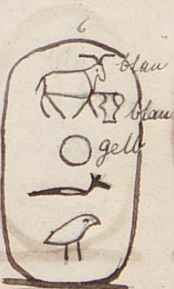 6
blau
blau
gelb